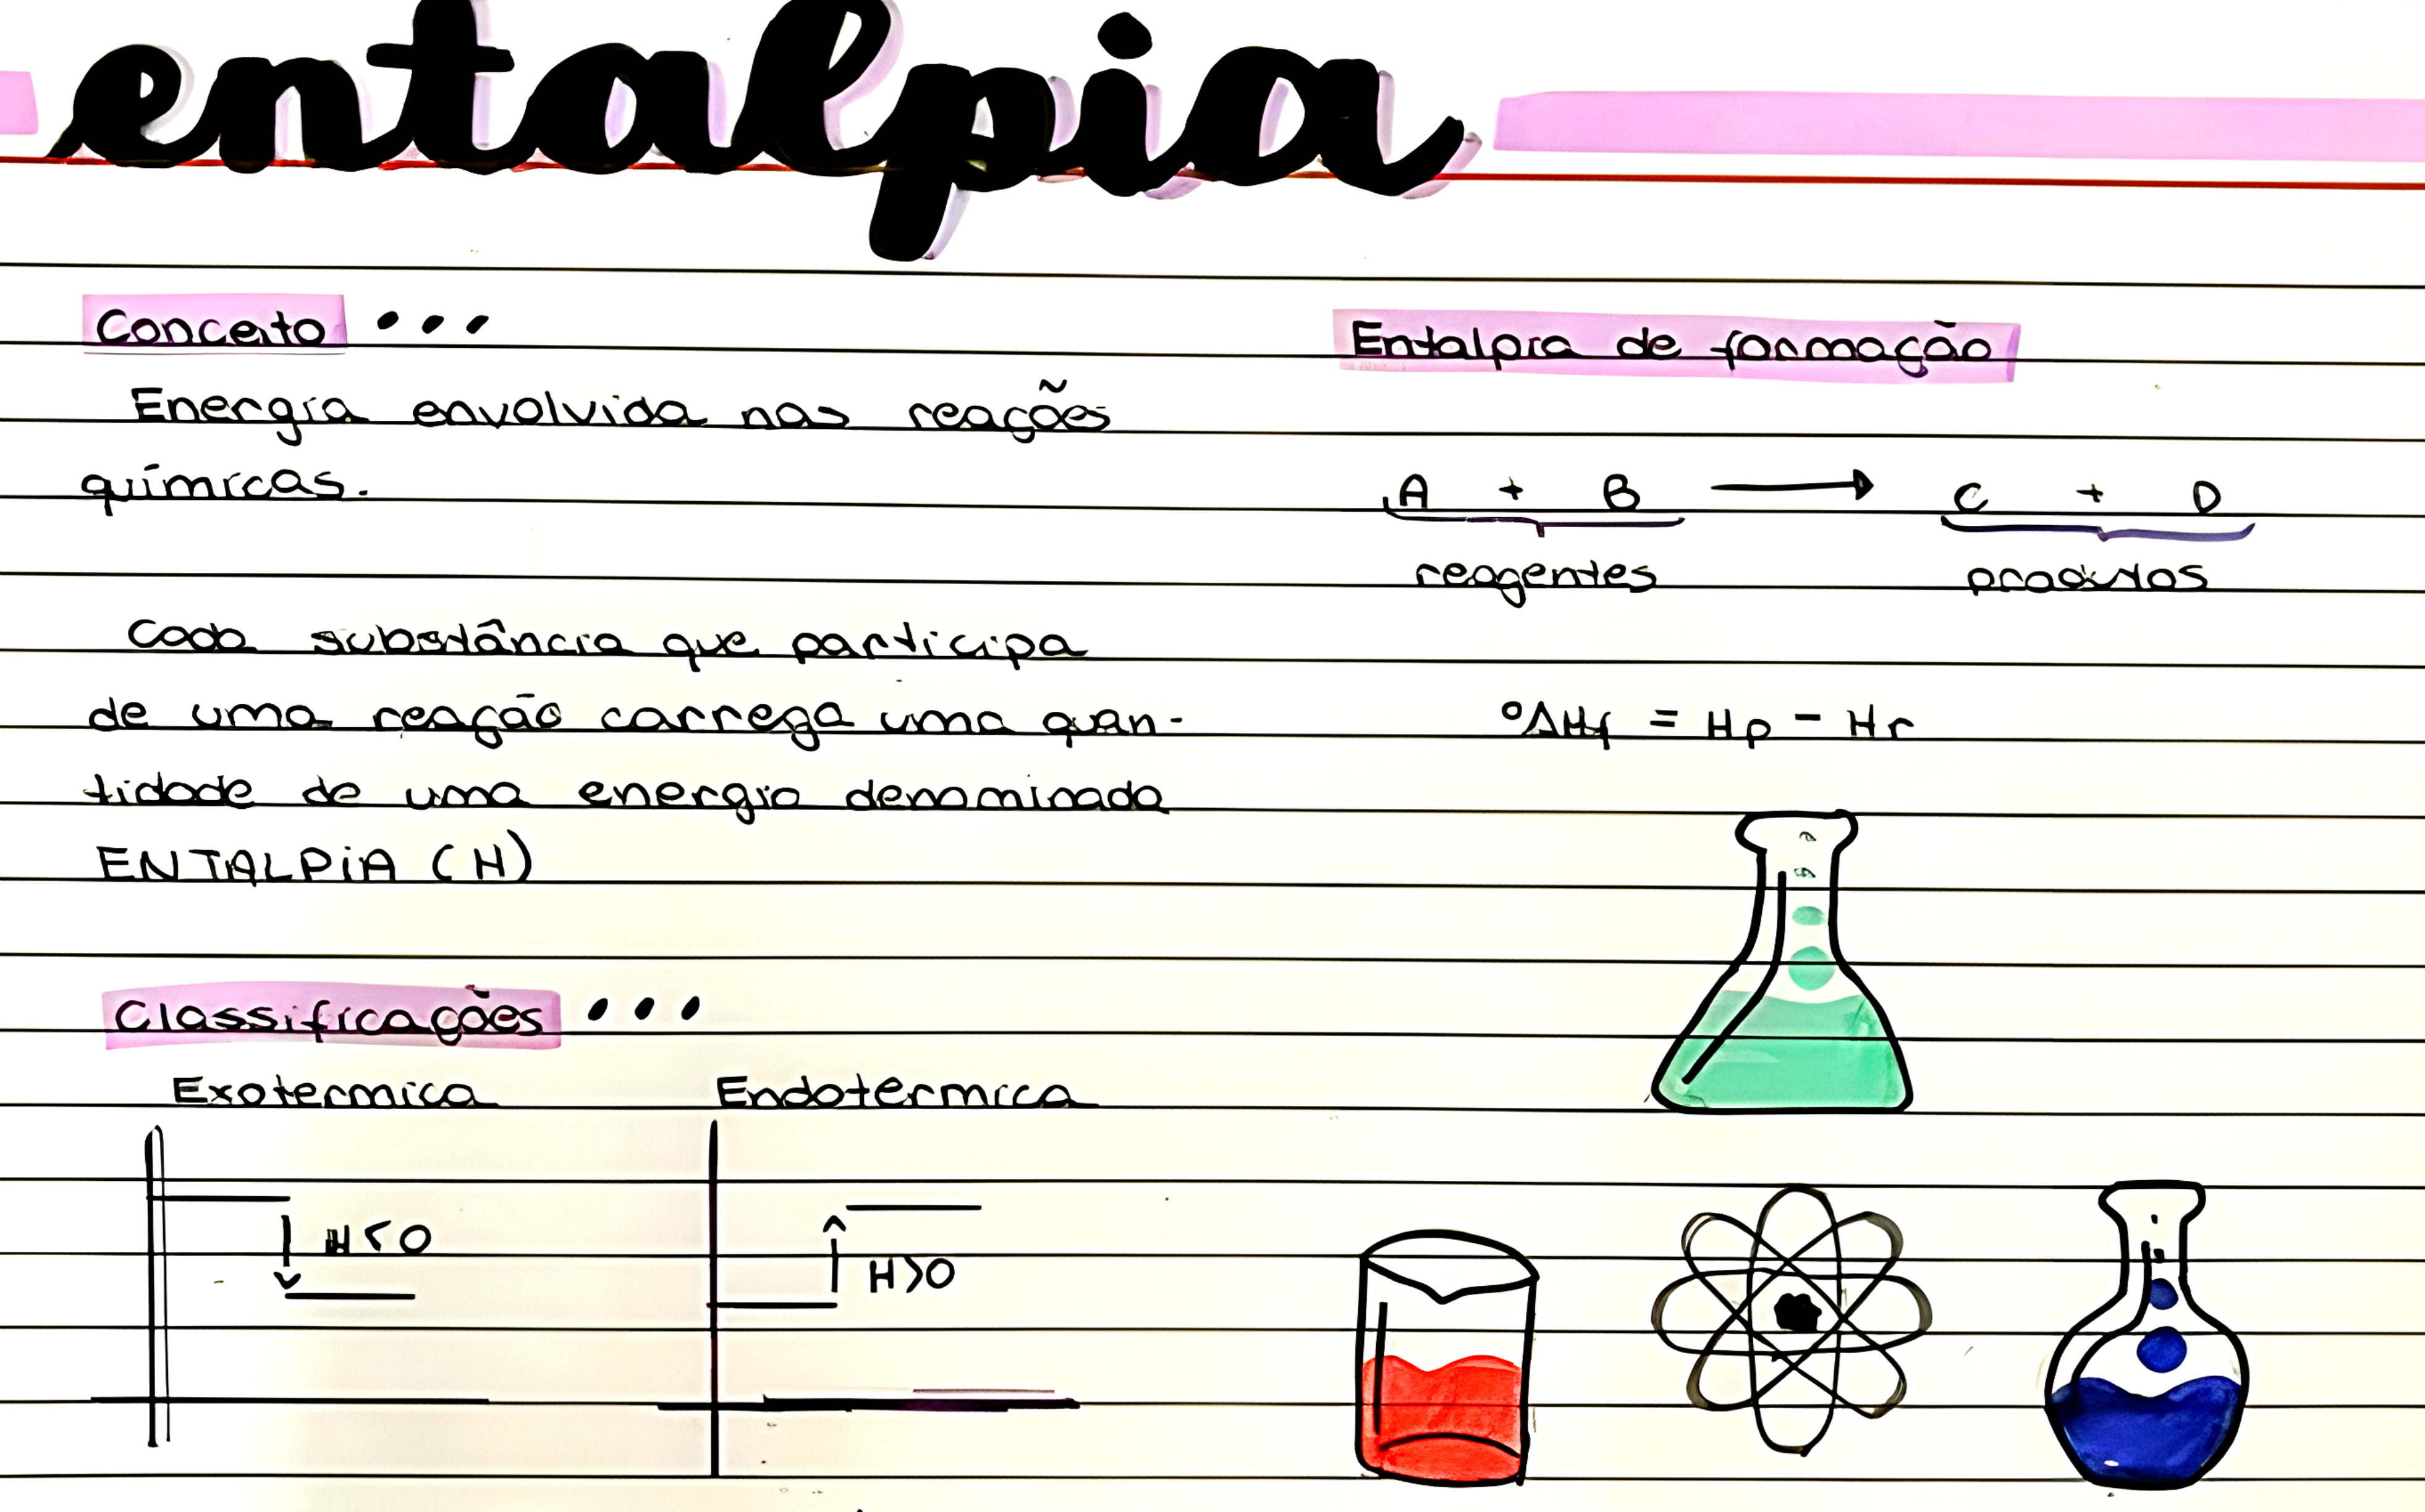 entalpia
Conceito •••
Energia envolvida nas reações
químicas.
Cada substância que participa
de uma reação carrega uma quan-
tidade de uma energia denominada
ENTALPIA (H)
Classificações •••
Exotermica
H<0
Endotermica
H>0
Entalpia de formação
A + B → C + D
reagentes produtos
°ΔHf = Hp - Hr